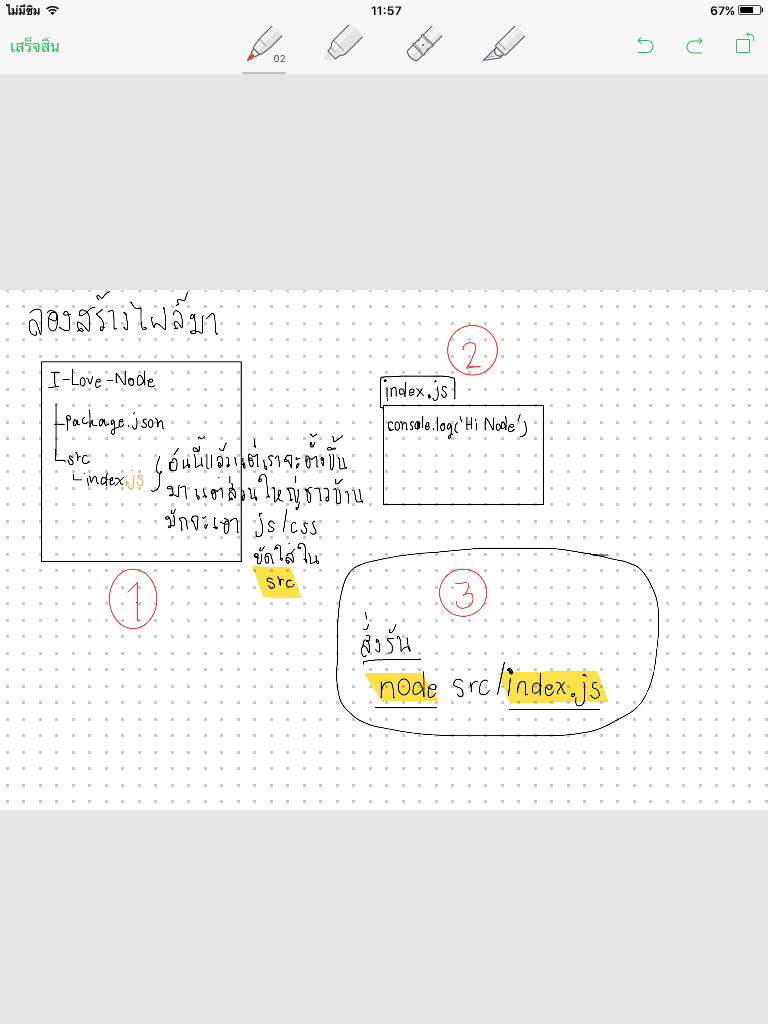 ไม่มีซิม 11:57 67%
เสร็จสิ้น 02
ลองสร้างไฟล์มา
I-Love-Node
package.json
src
index.js
อันนี้แล้วแต่เราจะตั้งขึ้น
มา แต่ส่วนใหญ่ชาวบ้าน
มักจะเอา js/css
ยัดใส่ใน
src
1
2
index.js
console.log('Hi Node')
3
สั่งรัน
node src/index.js